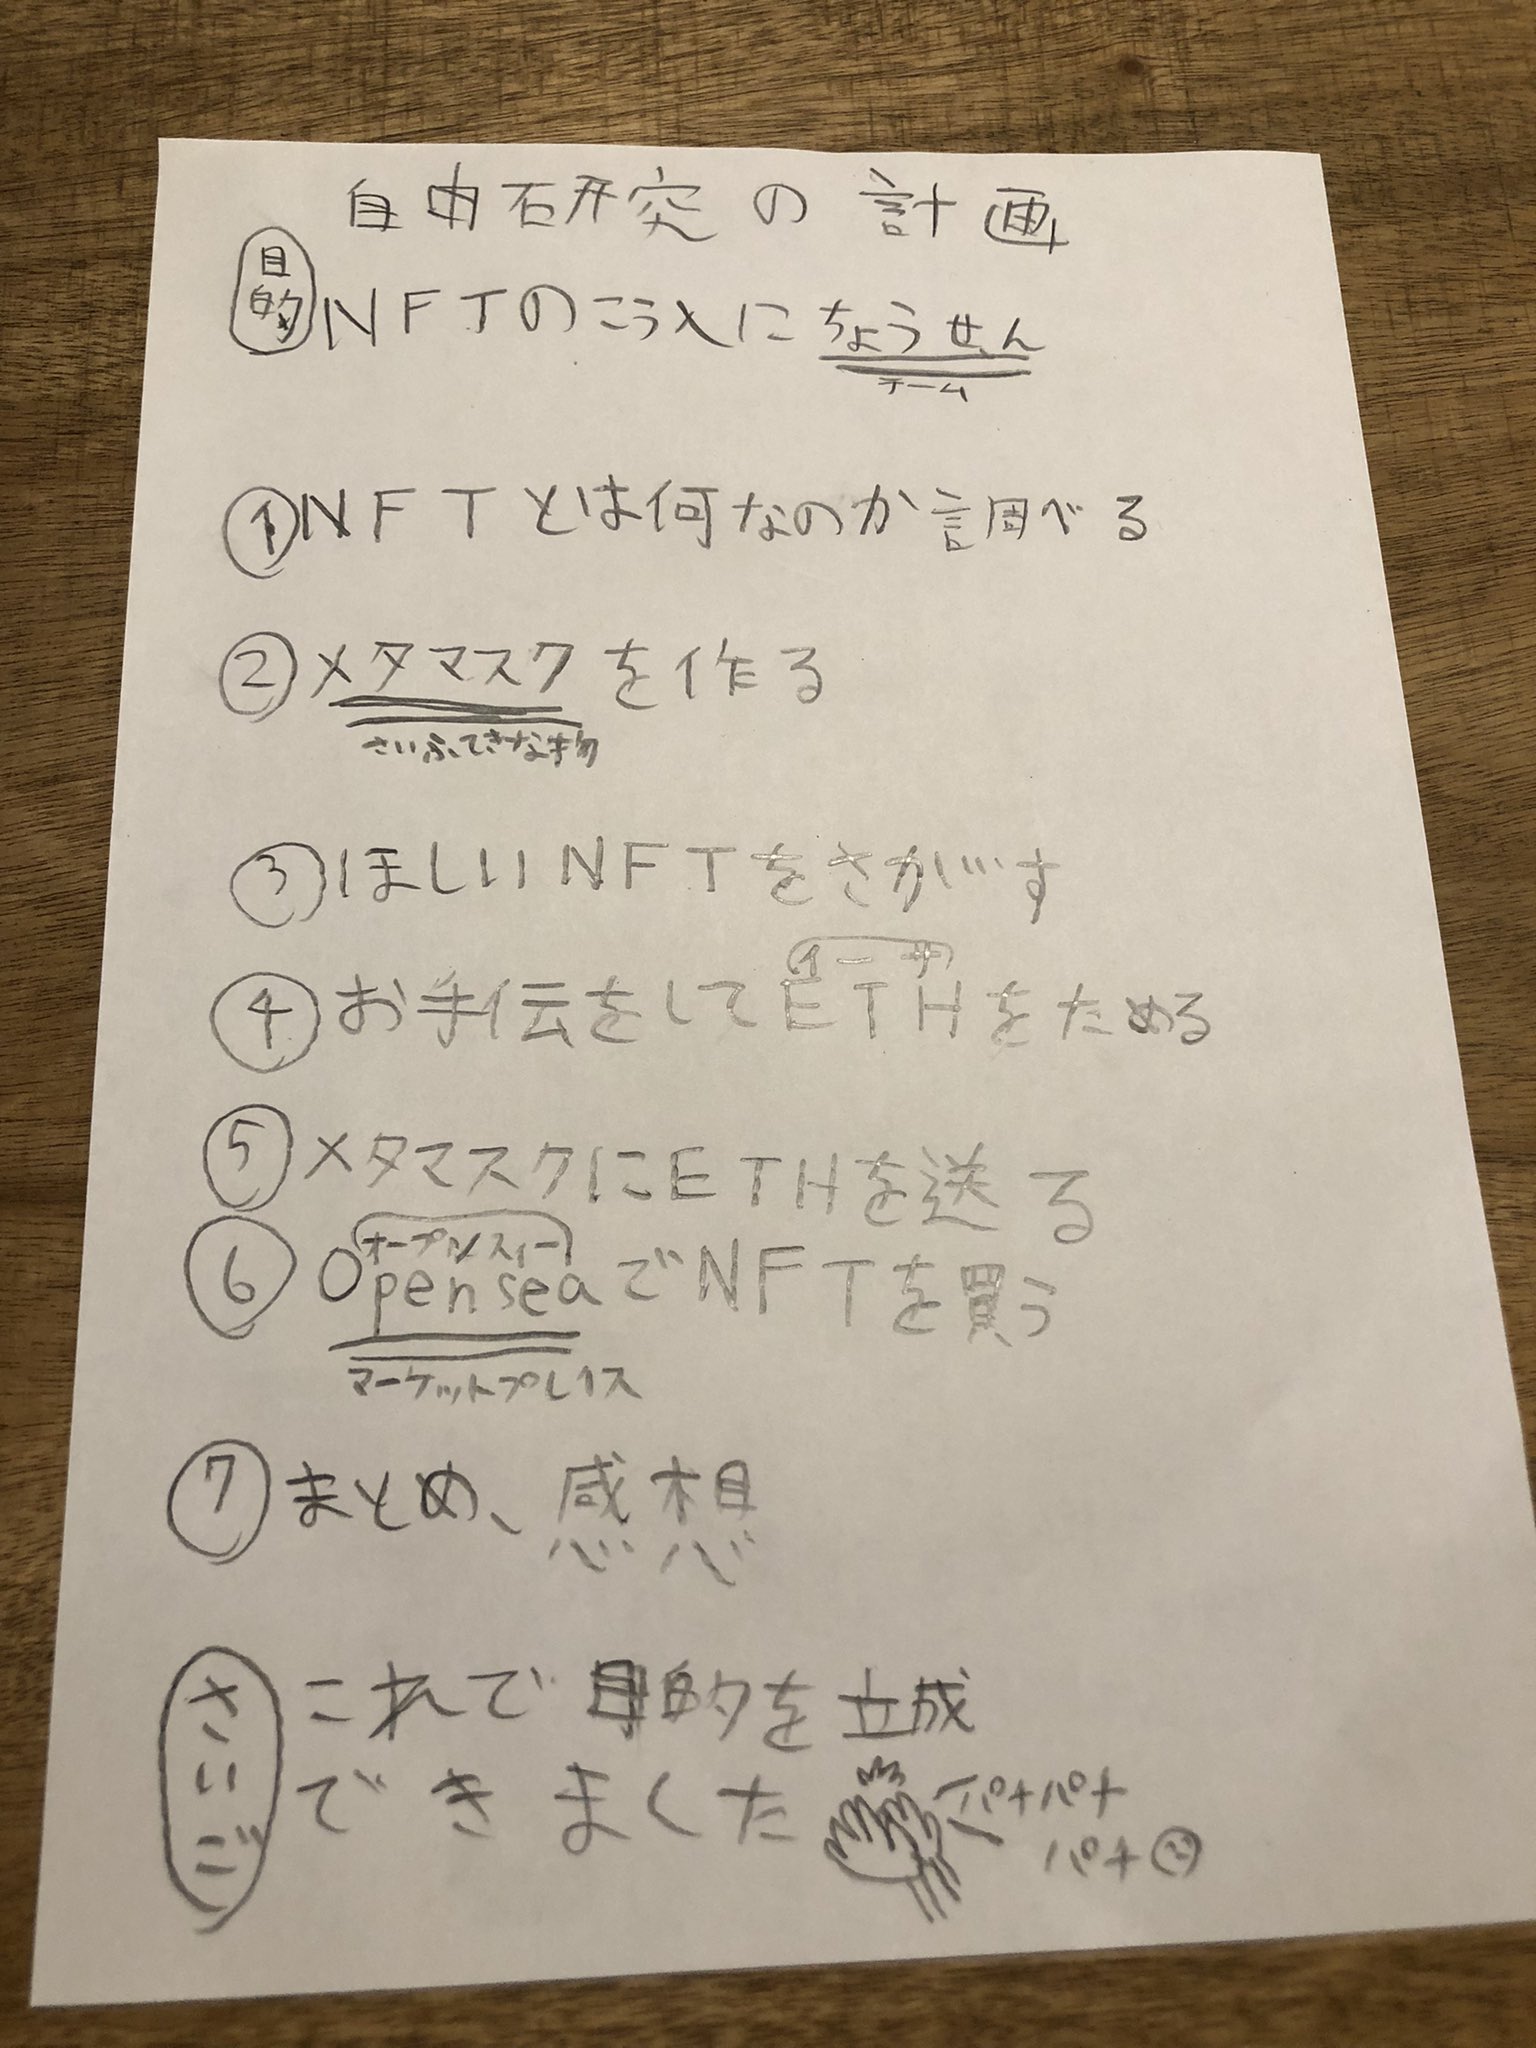 自由研究の計画
目的 NFTのこう入にちょうせん
テーム
① NFTとは何なのか調べる
② メタマスクを作る
さいふてきな物
③ ほしいNFTをさがす
イーサ
④ お手伝をしてETHをためる
⑤ メタマスクにETHを送る
オープンスィー
⑥ OpenseaでNFTを買う
マーケットプレイス
⑦ まとめ、感想
さいご これで目的を立成
できました パチパチ
パチ